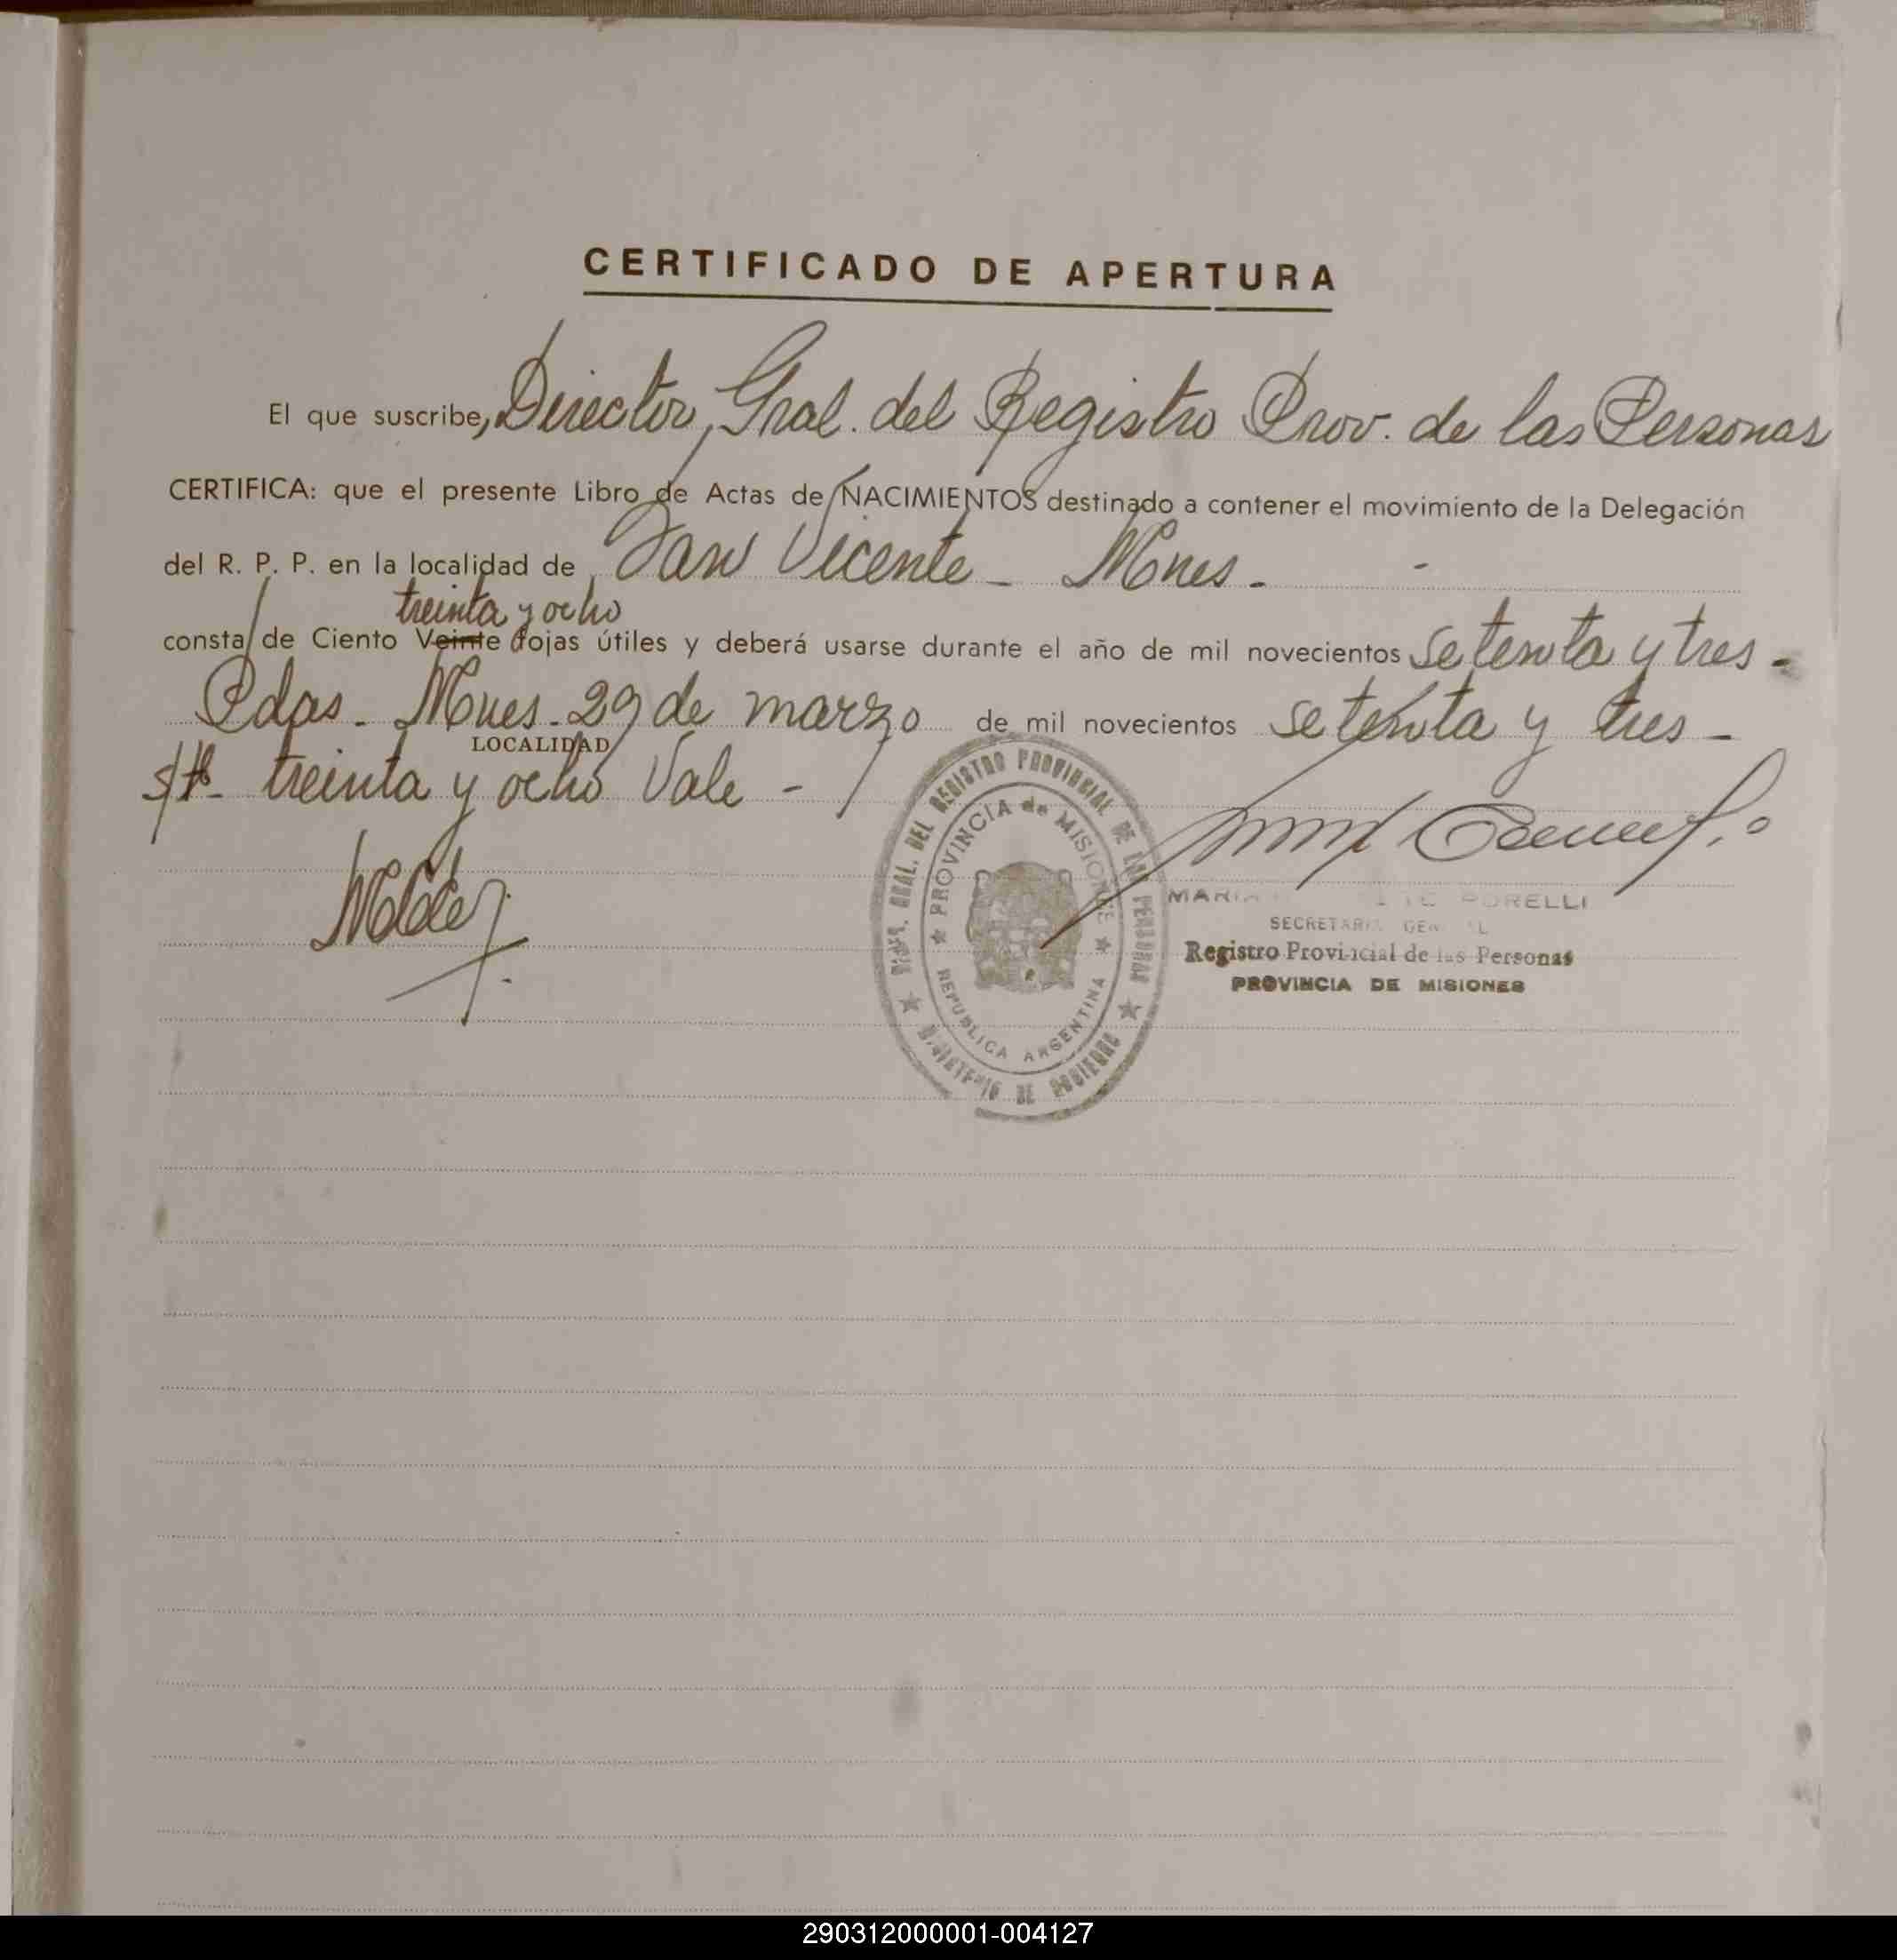 CERTIFICADO DE APERTURA
El que suscribe, Director Gral. del Registro Prov. de las Personas
CERTIFICA: que el presente Libro de Actas de NACIMIENTOS destinado a contener el movimiento de la Delegación
del R. P. P. en la localidad de San Vicente - Mnes. -
treinta y ocho
consta de Ciento Veinte fojas útiles y deberá usarse durante el año de mil novecientos setenta y tres -
Pdas - Mnes - 29 de marzo de mil novecientos setenta y tres -
LOCALIDAD
treinta y ocho Vale -
DIRC. GRAL. DEL REGISTRO PROVINCIAL DE LAS PERSONAS
PROVINCIA de MISIONES
REPUBLICA ARGENTINA
MINISTERIO DE GOBIERNO
MARIA PORELLI
SECRETARIA GENERAL
Registro Provincial de las Personas
PROVINCIA DE MISIONES
290312000001-004127